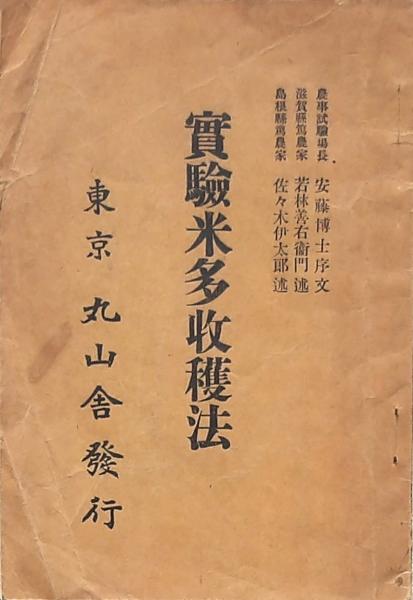 農事試驗場長 安藤博士序文
滋賀縣篤農家 若林善右衞門述
島根縣篤農家 佐々木伊太郎述
實驗米多收穫法
東京 丸山舎發行